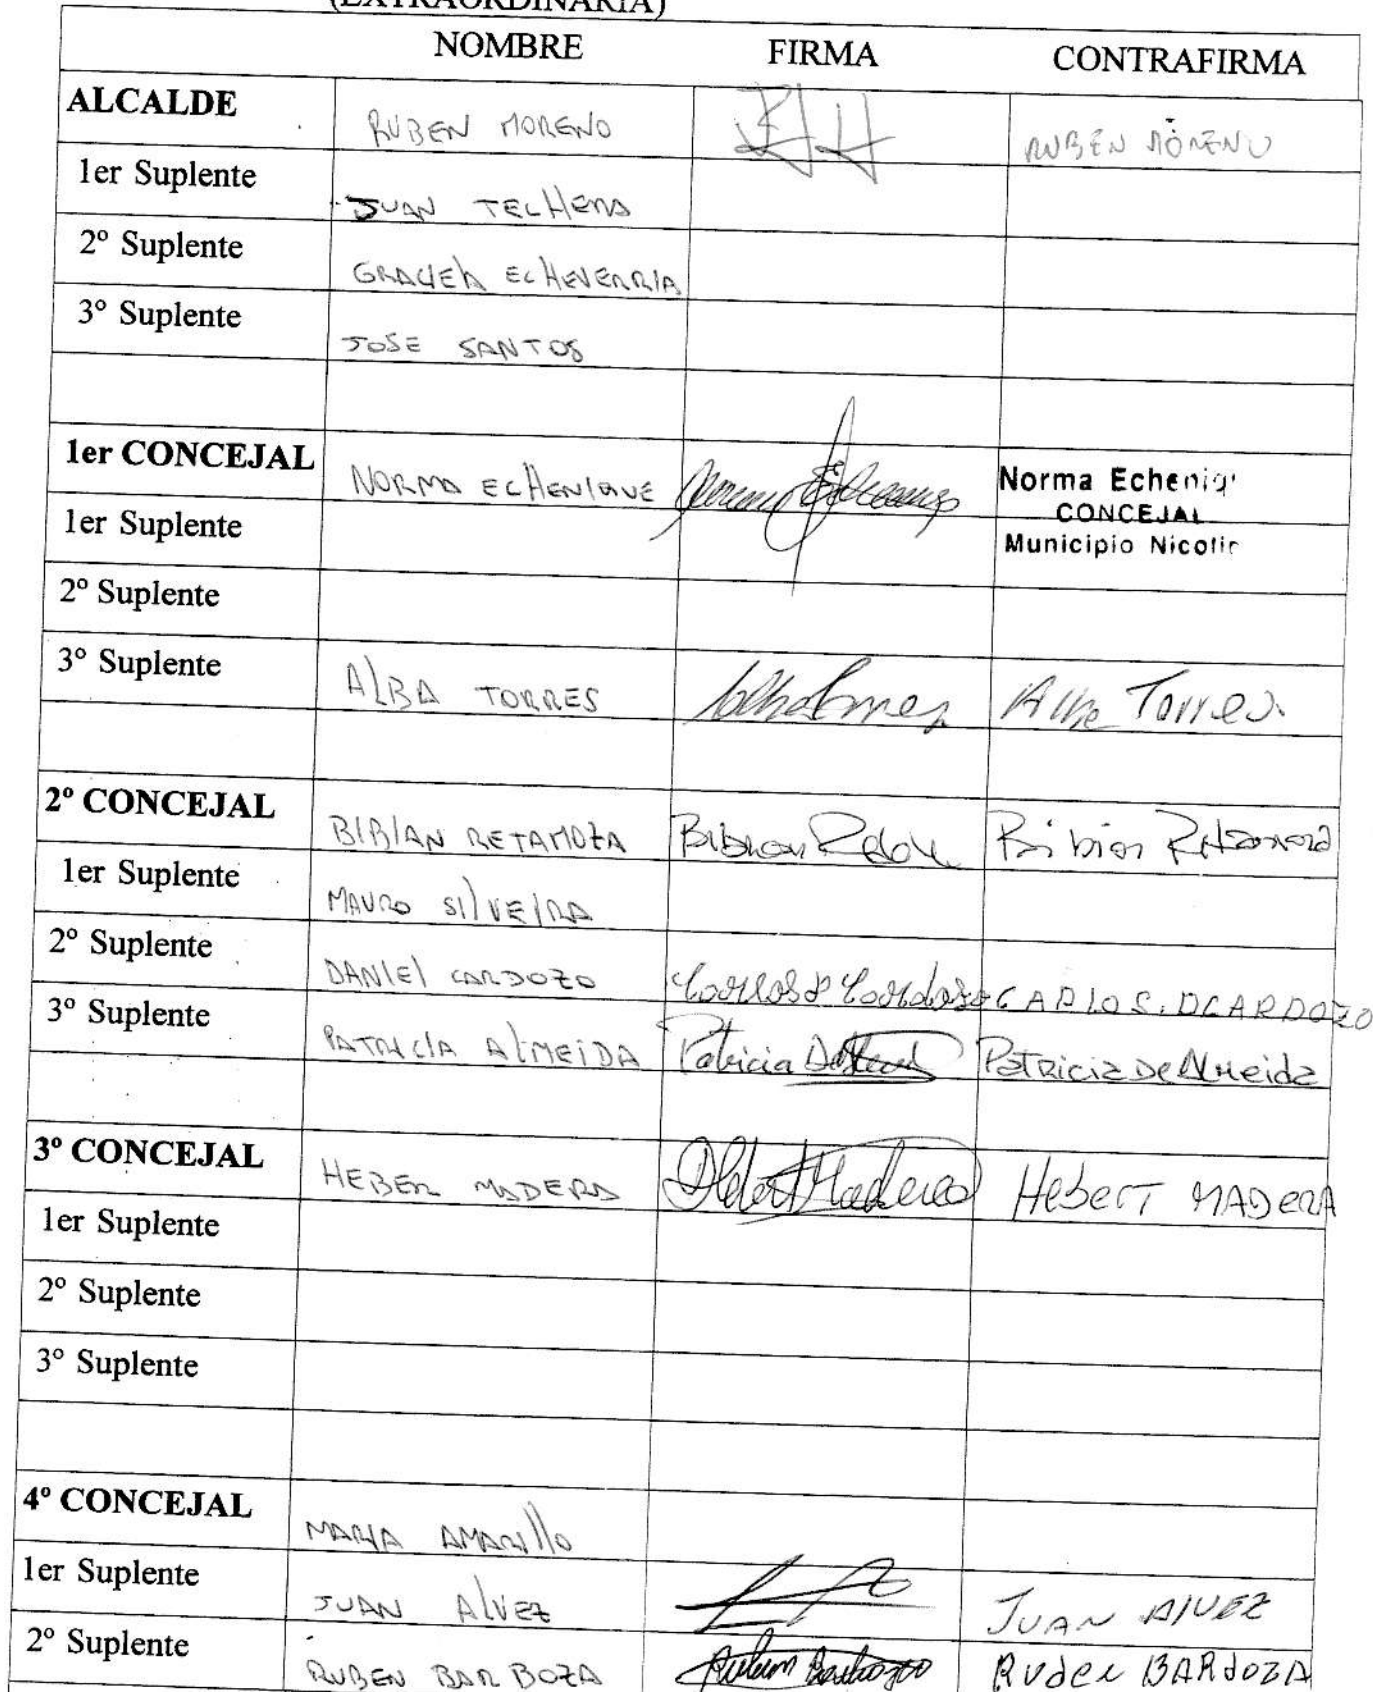 (EXTRAORDINARIA)
NOMBRE FIRMA CONTRAFIRMA
ALCALDE RUBEN MORENO RUBEN MORENO
1er Suplente JUAN TECHERA
2º Suplente GRACIELA ECHEVERRIA
3º Suplente JOSE SANTOS
1er CONCEJAL NORMA ECHENIQUE Norma Echeniq
CONCEJAL
1er Suplente Municipio Nicolic
2º Suplente
3º Suplente ALBA TORRES Alba Torres
2º CONCEJAL BIBIAN RETAMOZA Bibian Reta Bibian Retamoza
1er Suplente MAURO SILVEIRA
2º Suplente DANIEL CARDOZO Carlos D Cardozo CARLOS. DCARDOZO
3º Suplente PATRICIA ALMEIDA Patricia Patricia De Almeida
3º CONCEJAL HEBER MADERA Hebert Madera Hebert MADERA
1er Suplente
2º Suplente
3º Suplente
4º CONCEJAL MARIA AMARILLO
1er Suplente JUAN ALVEZ JUAN AlVEZ
2º Suplente RUBEN BARBOZA Ruben Barbozo Ruben BARBOZA